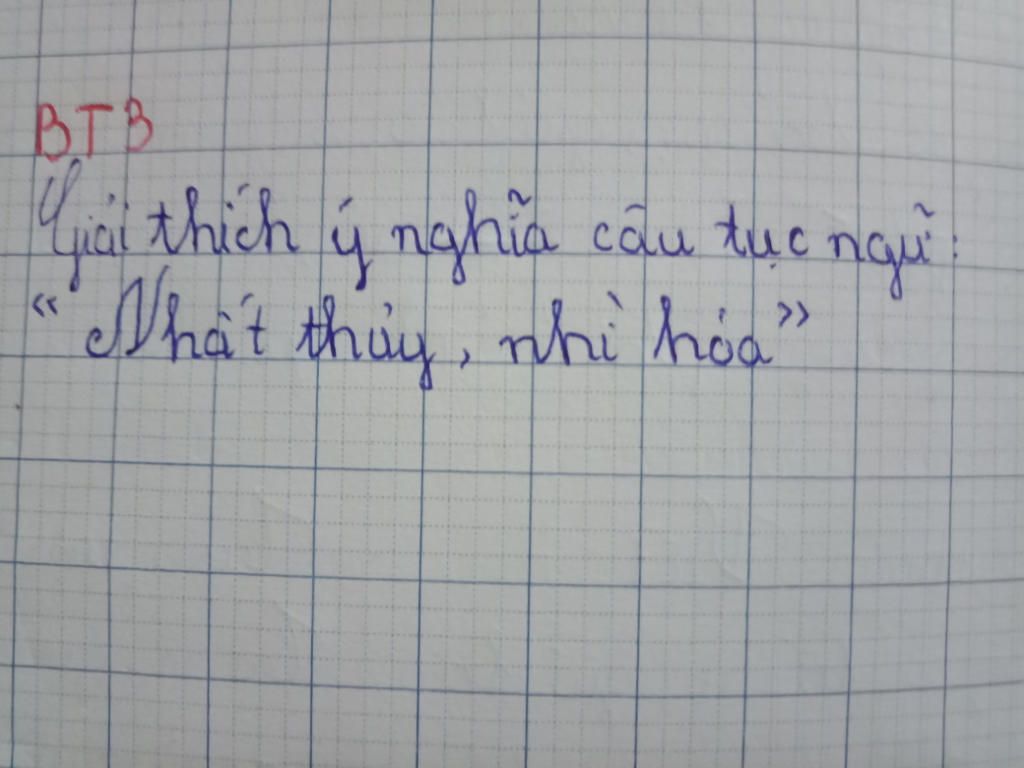 BT3
Giải thích ý nghĩa câu tục ngữ:
" Nhất thủy, nhì hỏa"